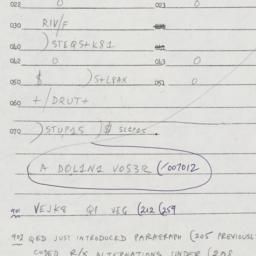 022 0 023 0
030 RIV/F
040 )STEQS+K81
042 0 043 0
050 $ )S+LPAX 051 0
060 +/DRUT+
070 )STUP15 )$ SLEP25.
A DOL1N1 VOS3R (/007012
901 VEJK8 Q1 VEG (212 (259
902 QED JUST INTRODUCED PARAGRAPH (205 PREVIOUSL
CODED R/X ALTERNATIONS UNDER (208